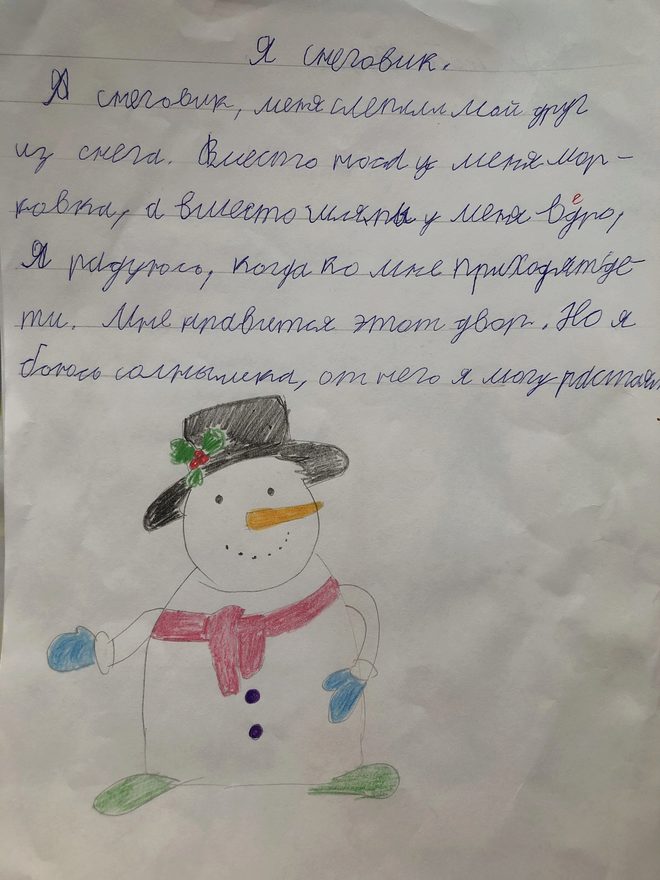 Я снеговик.
Я снеговик, меня слепили мой друг
из снега. Вместо носа у меня мор-
ковка, а вместо шляпы у меня ведро,
Я радуюсь, когда ко мне приходят де-
ти. Мне нравится этот двор. Но я
боюсь солнышка, от него я могу растаять